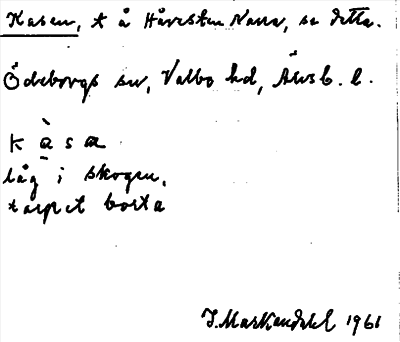 Kasen, t å Håvesten Norra, se detta.
Ödeborgs sn, Valbo hd, Älvsb. l.
kàsa
låg i skogen,
torpet borta
J. Markendahl 1961